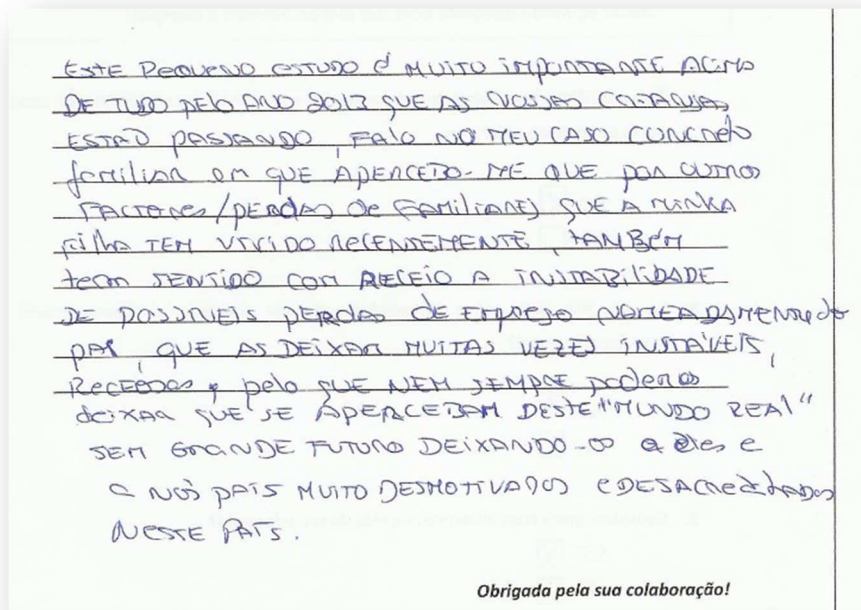 Este pequeno estudo é muito importante acima
de tudo pelo ano 2013 que as nossas crianças
estão passando, falo no meu caso concreto
familiar em que apercebo-me que por outros
factores/perdas de familiares que a minha
filha tem vivido recentemente, também
tem sentido com receio a instabilidade
de possíveis perdas de emprego nomeadamente do
pai, que as deixam muitas vezes instáveis,
pelo que nem sempre podemos
deixar que se apercebam deste "mundo real"
sem grande futuro deixando-os a eles e
a nós pais muito desmotivados e desacreditados
neste país.
Obrigada pela sua colaboração!